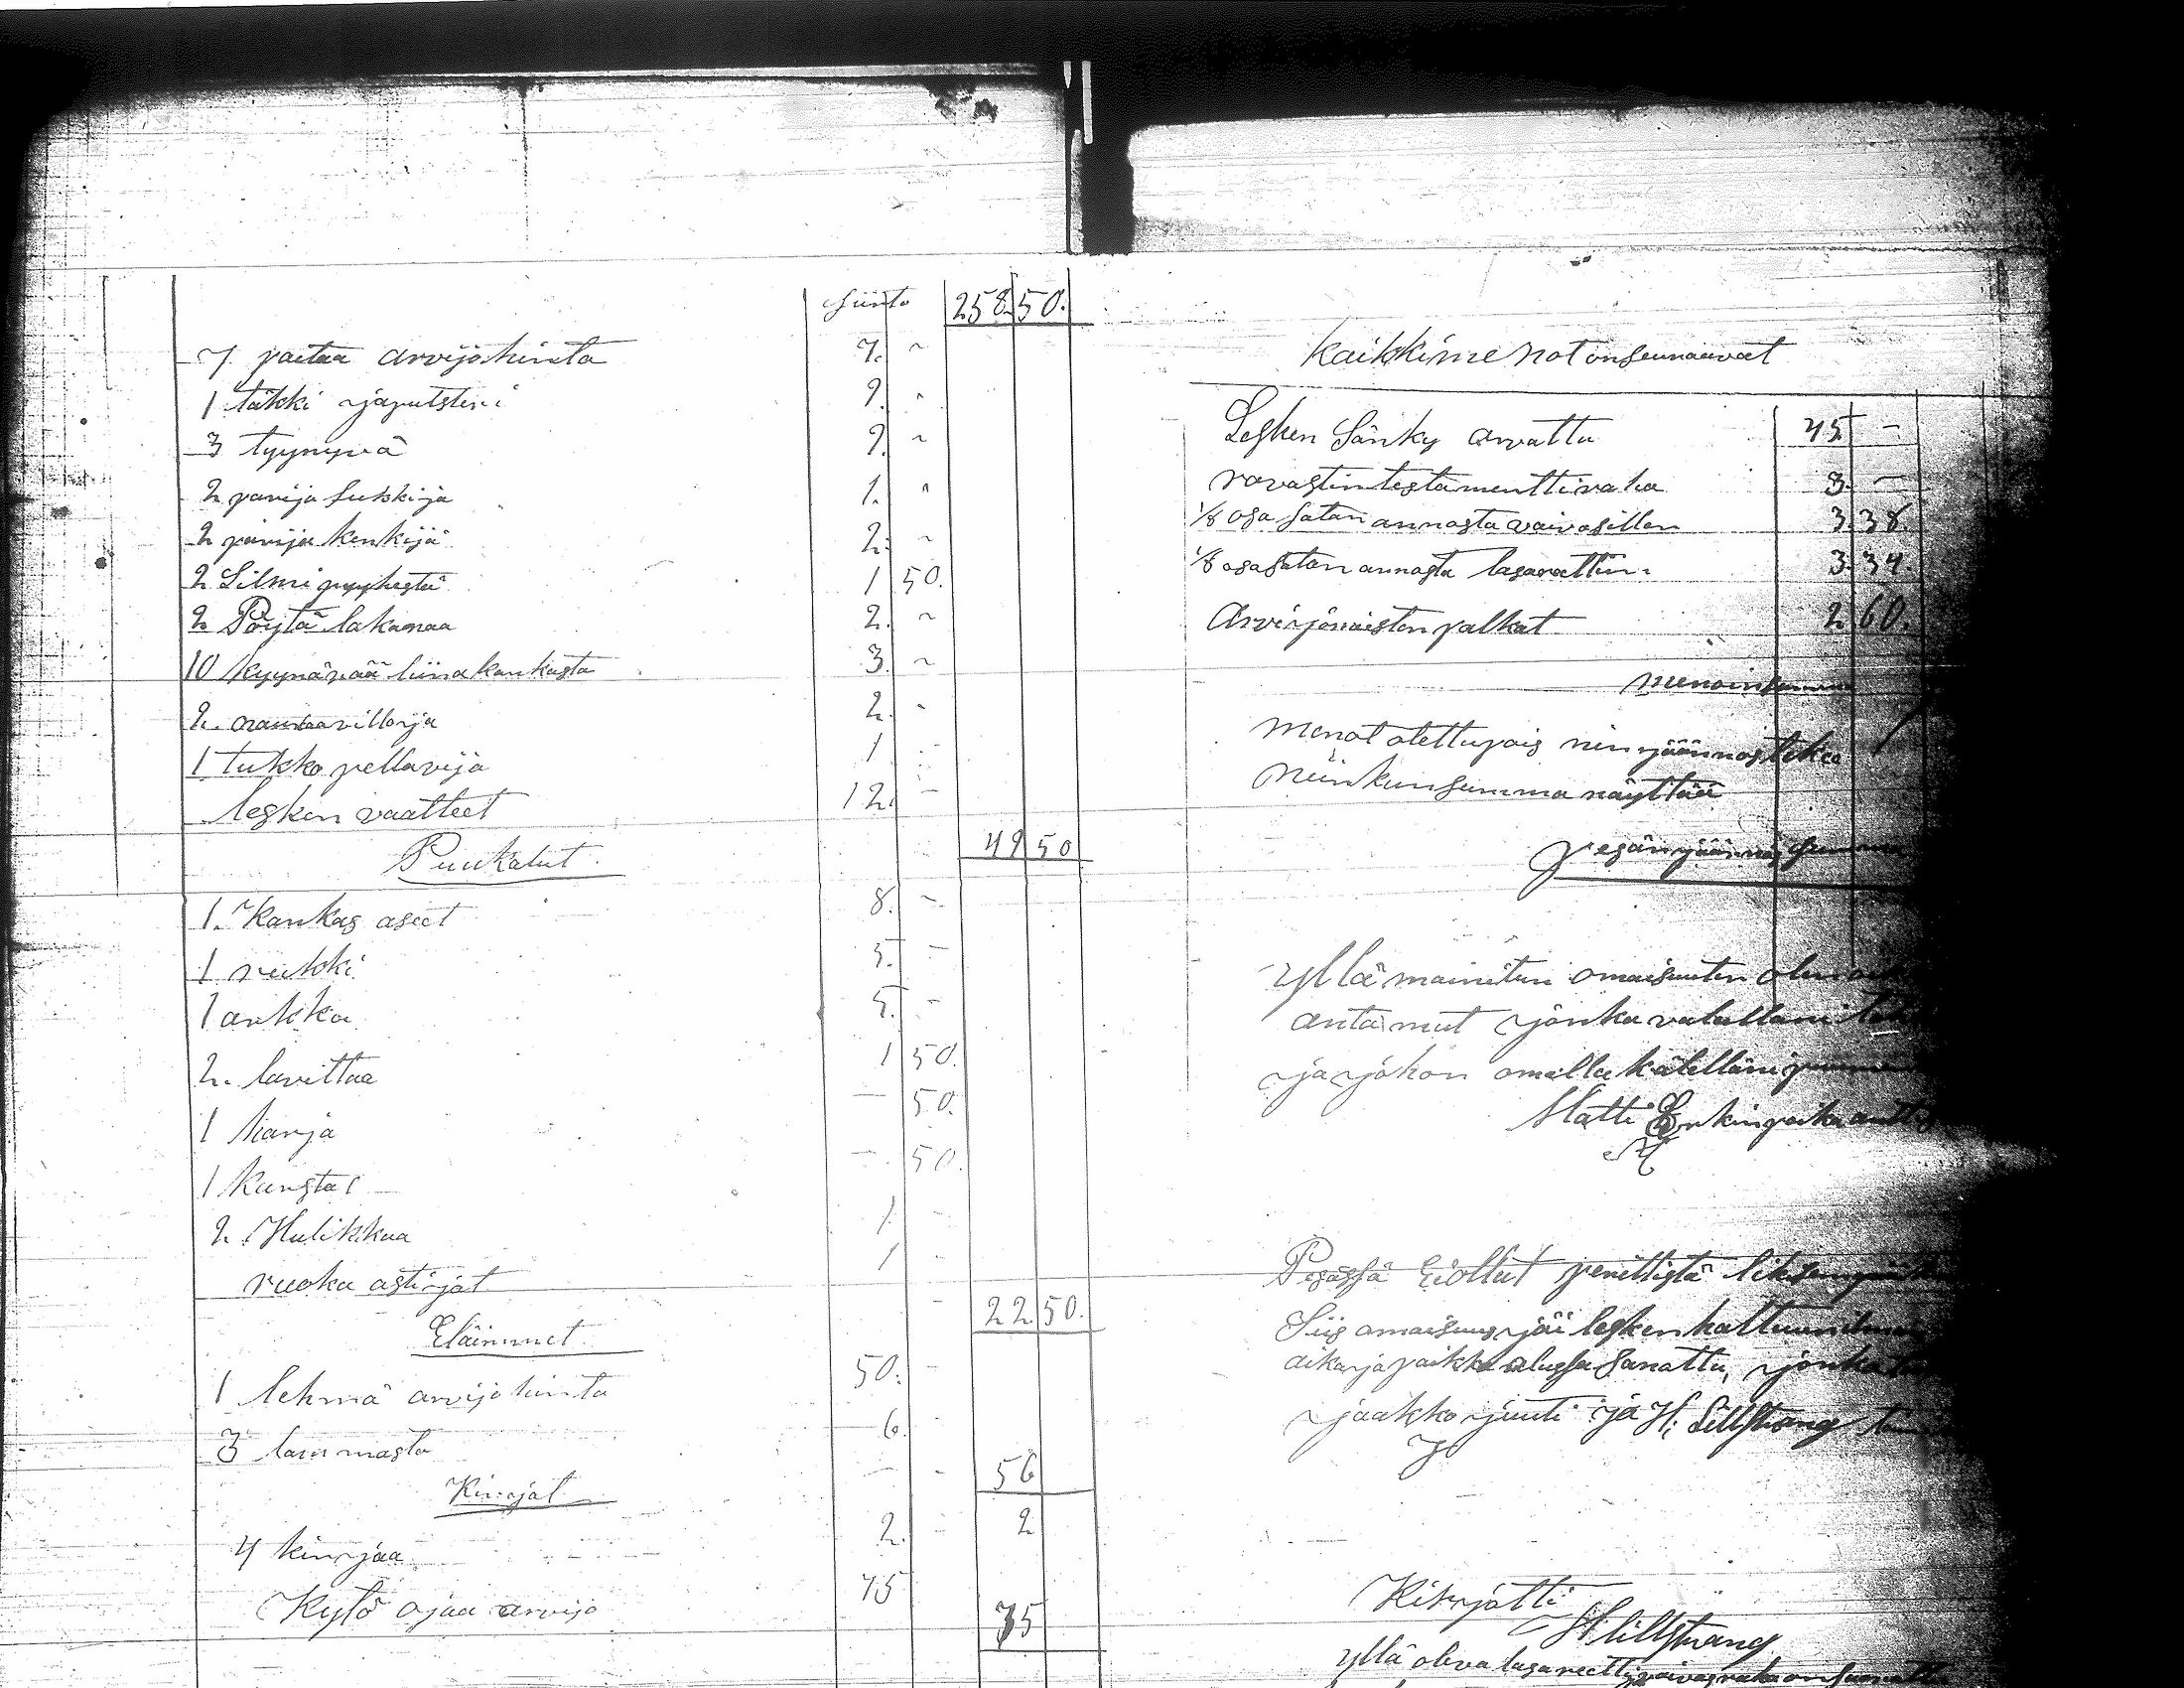 Siirto 258 50.
7 paitaa arvijohinta 7. -
1 täkki japutsteri 9. -
3 tyynyvä 9. -
2 parija sukkija 1. -
2 parija kenkijä 2. -
2 Silmi pyyhestä 1 50.
2 Pöytä lakanaa 2. -
10 kyynärää liina kankasta 3. -
2. naulaa villoja 2. -
1 tukko pellavija 1 -
lesken vaatteet 12. -
49 50
Puukalut
1. Kankas aseet 8. -
1 rukki 5. -
1 arkku 5. -
2. lavittaa 1 50.
1 harja - 50.
1 kangtal - 50.
2. Hulikkaa 1 -
ruoka astijat 1 -
22 50.
Eläimmet
1 lehmä arvijohinta 50. -
3 lammasta 6.
56
Kirjat
4 kirjaa 2. - 2
Kytö ojaa arvijo 75
75
Kaikki menot on seuraavat
Lesken Sänky arvattu 45 -
rovastin testamenttiraha 3. -
1/8 osa satan annosta vaivasillen 3. 38
1/8 osa satan annosta lasarettiin 3. 34.
Arvijomiesten palkat 2 60.
menoin summa
Menot otettu pois niin jäännös tekee
Niinkun summa näyttää
Pesän jäännös summa
Yllä mainitun omaisuuten olen
antanut jonka valallani
ja johon omalla kätelläni
Matti Erkinpoika
Pesässä Ei ollut perillistä
Siis omaisuus jää lesken haltuun
aika ja paikka alussa sanottu, jonka
jaakko juuti ja H. Lillstrang
Kirjotti
H Lillstrang
yllä oleva lasareetti ja vaivasraha on